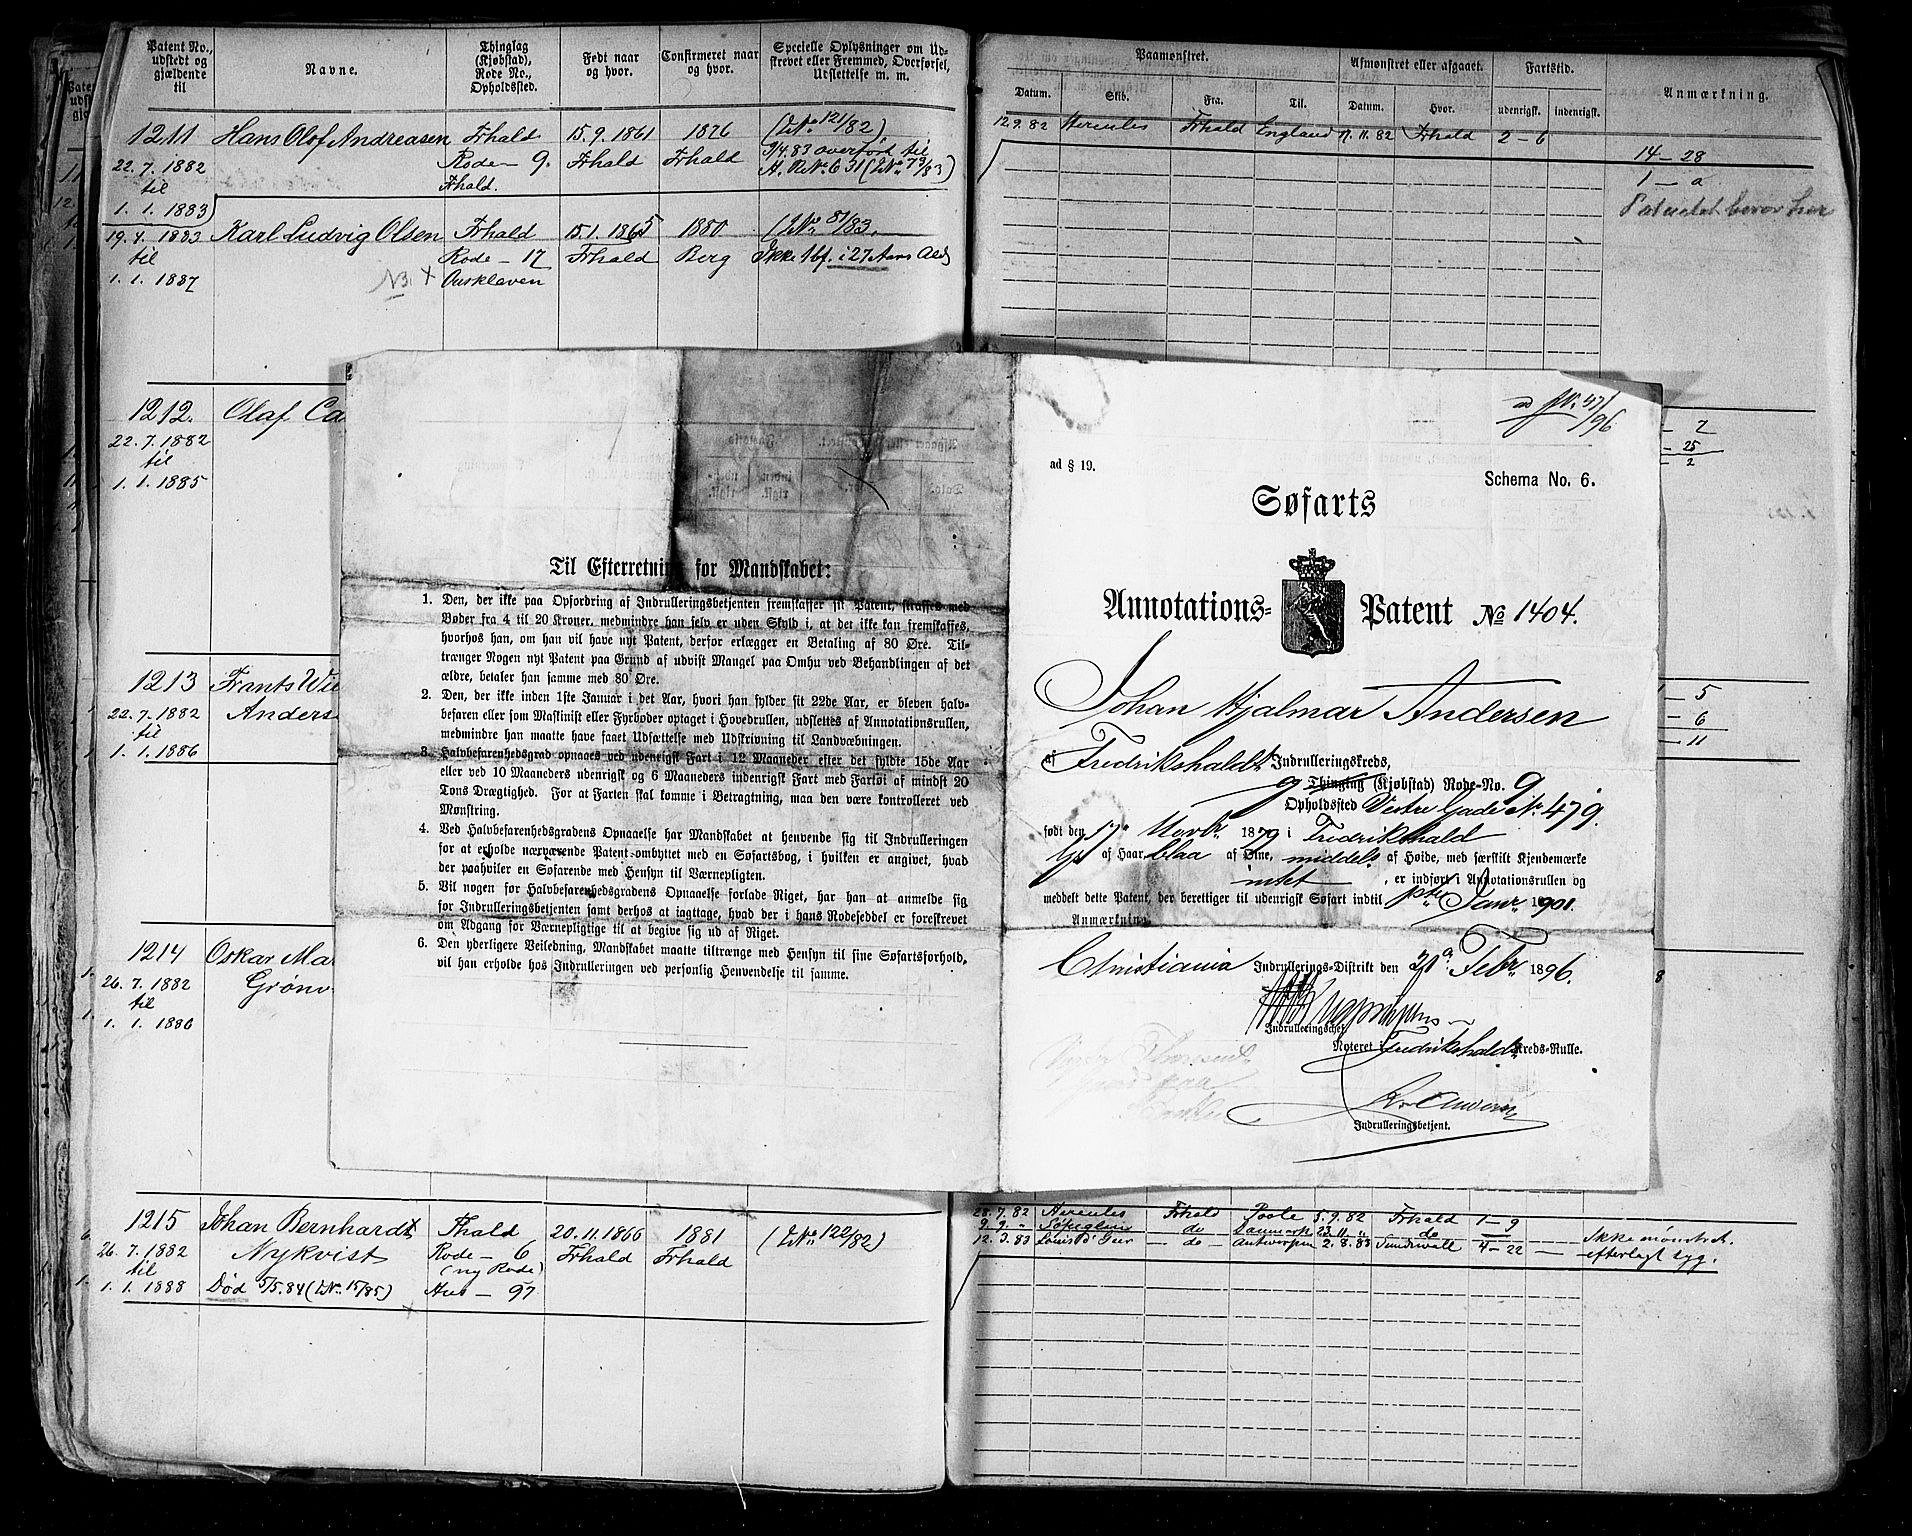 Patent No., udstedt og gjældende til
Navne.
Thinglag (Kjøbstad), Rode No., Opholdssted.
Født naar og hvor.
Confirmeret naar og hvor.
Specielle Oplysninger om Udskrevet eller Fremmed, Overførsel, Udslettelse m. m.
Paamønstret.
Afmønstret eller afgaaet.
Fartstid.
Anmærkning.
Datum.
Skib.
Fra.
Til.
Datum.
Hvor.
udenrigsk.
indenrigsk.
1211 Hans Olof Andreasen Frhald 15.9.1861 1876 (LNo 121/82)
22.7.1882 Rode - 9. Frhald Frhald 9/4.83 overført til
til Frhald. H. R No 631 (LNo 79/83)
1.1.1883)
12.9.82 Hercules Frhald England 17.11.82 Frhald 2-6
14-28
1-a
19.4.1883 Karl Ludvig Olsen Frhald 15.1.1865 1880 (LNo 81/83.
til Rode - 17 Frhald Berg Ikke hbf. i 27 Aars Ald.
1.1.1887
1212. Olaf Ca
22.7.1882
til
1.1.1885
7
25
2
1213 Frants Wil
22.7.1882 Anders
til
1.1.1886
5
6
11
1214 Oskar Mar
26.7.1882 Grønv
til
1.1.1886
8
Til Efterretning for Mandskabet:
1. Den, der ikke paa Opfordring af Indrulleringsbetjenten fremskaffer sit Patent, straffes med
Bøder fra 4 til 20 Kroner, medmindre han selv er uden Skyld i, at det ikke kan fremskaffes,
hvorhos han, om han vil have nyt Patent, derfor erlægger en Betaling af 80 Øre. Til-
trænger Nogen nyt Patent paa Grund af udvist Mangel paa Omhu ved Behandlingen af det
ældre, betaler han samme med 80 Øre.
2. Den, der ikke inden 1ste Januar i det Aar, hvori han fylder sit 22de Aar, er bleven halv-
befaren eller som Maskinist eller Fyrbøder optaget i Hovedrullen, udslettes af Annotationsrullen,
medmindre han maatte have faaet Udsættelse med Udskrivning til Landværbningen.
3. Halvbefarenhedsgrad opnaaes ved udenrigsk Fart i 12 Maaneder efter det fyldte 15de Aar
eller ved 10 Maaneders udenrigsk og 6 Maaneders indenrigsk Fart med Fartøi af mindst 20
Tons Drægtighed. For at Farten skal komme i Betragtning, maa den være kontrolleret ved
Mønstring.
4. Ved Halvbefarenhedsgradens Opnaaelse har Mandskabet at henvende sig til Indrulleringen
for at erholde nærværende Patent ombyttet med en Søfartsbog, i hvilken er angivet, hvad
der paahviler en Søfarende med Hensyn til Værnepligten.
5. Vil nogen før Halvbefarenhedsgradens Opnaaelse forlade Riget, har han at anmelde sig
for Indrulleringsbetjenten samt derhos at iagttage, hvad der i hans Rodeseddel er foreskrevet
om Adgang for Værnepligtige til at begive sig ud af Riget.
6. Den yderligere Veiledning, Mandskabet maatte tiltrænge med Hensyn til sine Søfartsforhold,
vil han erholde hos Indrulleringen ved personlig Henvendelse til samme.
ad JN. 47/96
ad § 19.
Schema No. 6.
Søfarts
Annotations- Patent No 1404.
Johan Hjalmar Andersen
af Fredrikshalds Indrulleringskreds,
9 Thinglag (Kjøbstad) Rode-No. 9
Opholdssted Vestre Gade No 479.
født den 17 Novbr. 1879 i Fredrikshald
lys af Haar, blaa af Øine, middels af Høide, med særskilt Kjendemærke
intet, er indført i Annotationsrullen og
meddelt dette Patent, der berettiger til udenrigsk Søfart indtil 1ste Janr 1901.
Anmærkning
Christiania Indrullerings-Distrikt den Febr. 1896.
Indrulleringschef.
Noteret i Fredrikshalds Kreds-Rulle.
Indrulleringsbetjent.
1215 Johan Bernhardt Fhald 20.11.1866 1881 (LNo 122/82)
26.7.1882 Nykvist Rode - 6 Frhald Frhald
til (ny Rode)
1.1.1888 Død 5/5.84 (LNo 15/85) Hus - 97
28.7.82 Hercules Frhald Poole 5.9.82 Frhald 1-9
9.9. " do Danmark 23.11. " do
12.3.83 Louis De Geer do Antwerpen 2.8.83 Sundsvall 4-22 - Ikke mønstret.
efterlagt